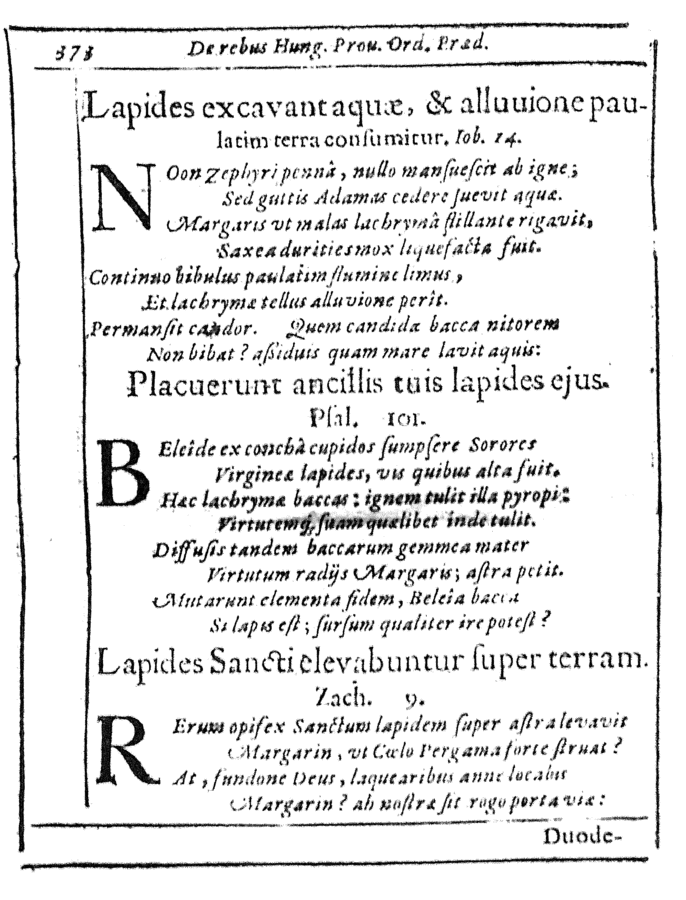 373 De rebus Hung. Prou. Ord. Præd.
Lapides excavant aquæ, & alluuione pau-
latim terra conſumitur. Iob. 14.
NOon Zephyri pennâ, nullo manſueſcit ab igne;
Sed guttis Adamas cedere ſuevit aquæ.
Margaris vt malas lachrymâ ſtillante rigavit,
Saxea durities mox liquefacta fuit.
Continuo bibulus paulatim flumine limus,
Et lachrymæ tellus alluvione perit.
Permanſit candor. Quem candida bacca nitorem
Non bibat? aßiduis quam mare lavit aquis:
Placuerunt ancillis tuis lapides ejus.
Pſal. 101.
BEleîde ex conchâ cupidos ſumpſere Sorores
Virgineæ lapides, vis quibus alta fuit.
Hæc lachrymæ baccas: ignem tulit illa pyropi:
Virtutemq́, ſuam quælibet inde tulit.
Diffuſis tandem baccarum gemmea mater
Virtutum radijs Margaris; aſtra petit.
Mutarunt elementa fidem, Beleîa bacca
Si lapis eſt; ſurſum qualiter ire poteſt?
Lapides Sancti elevabuntur ſuper terram.
Zach. 9.
RErum opifex Sanctum lapidem ſuper aſtra levavit
Margarin, vt Cœlo Pergama forte ſtruat?
At, ſundone Deus, laquearibus anne locabis
Margarin? ah noſtræ ſit rogo porta viæ:
Duode-